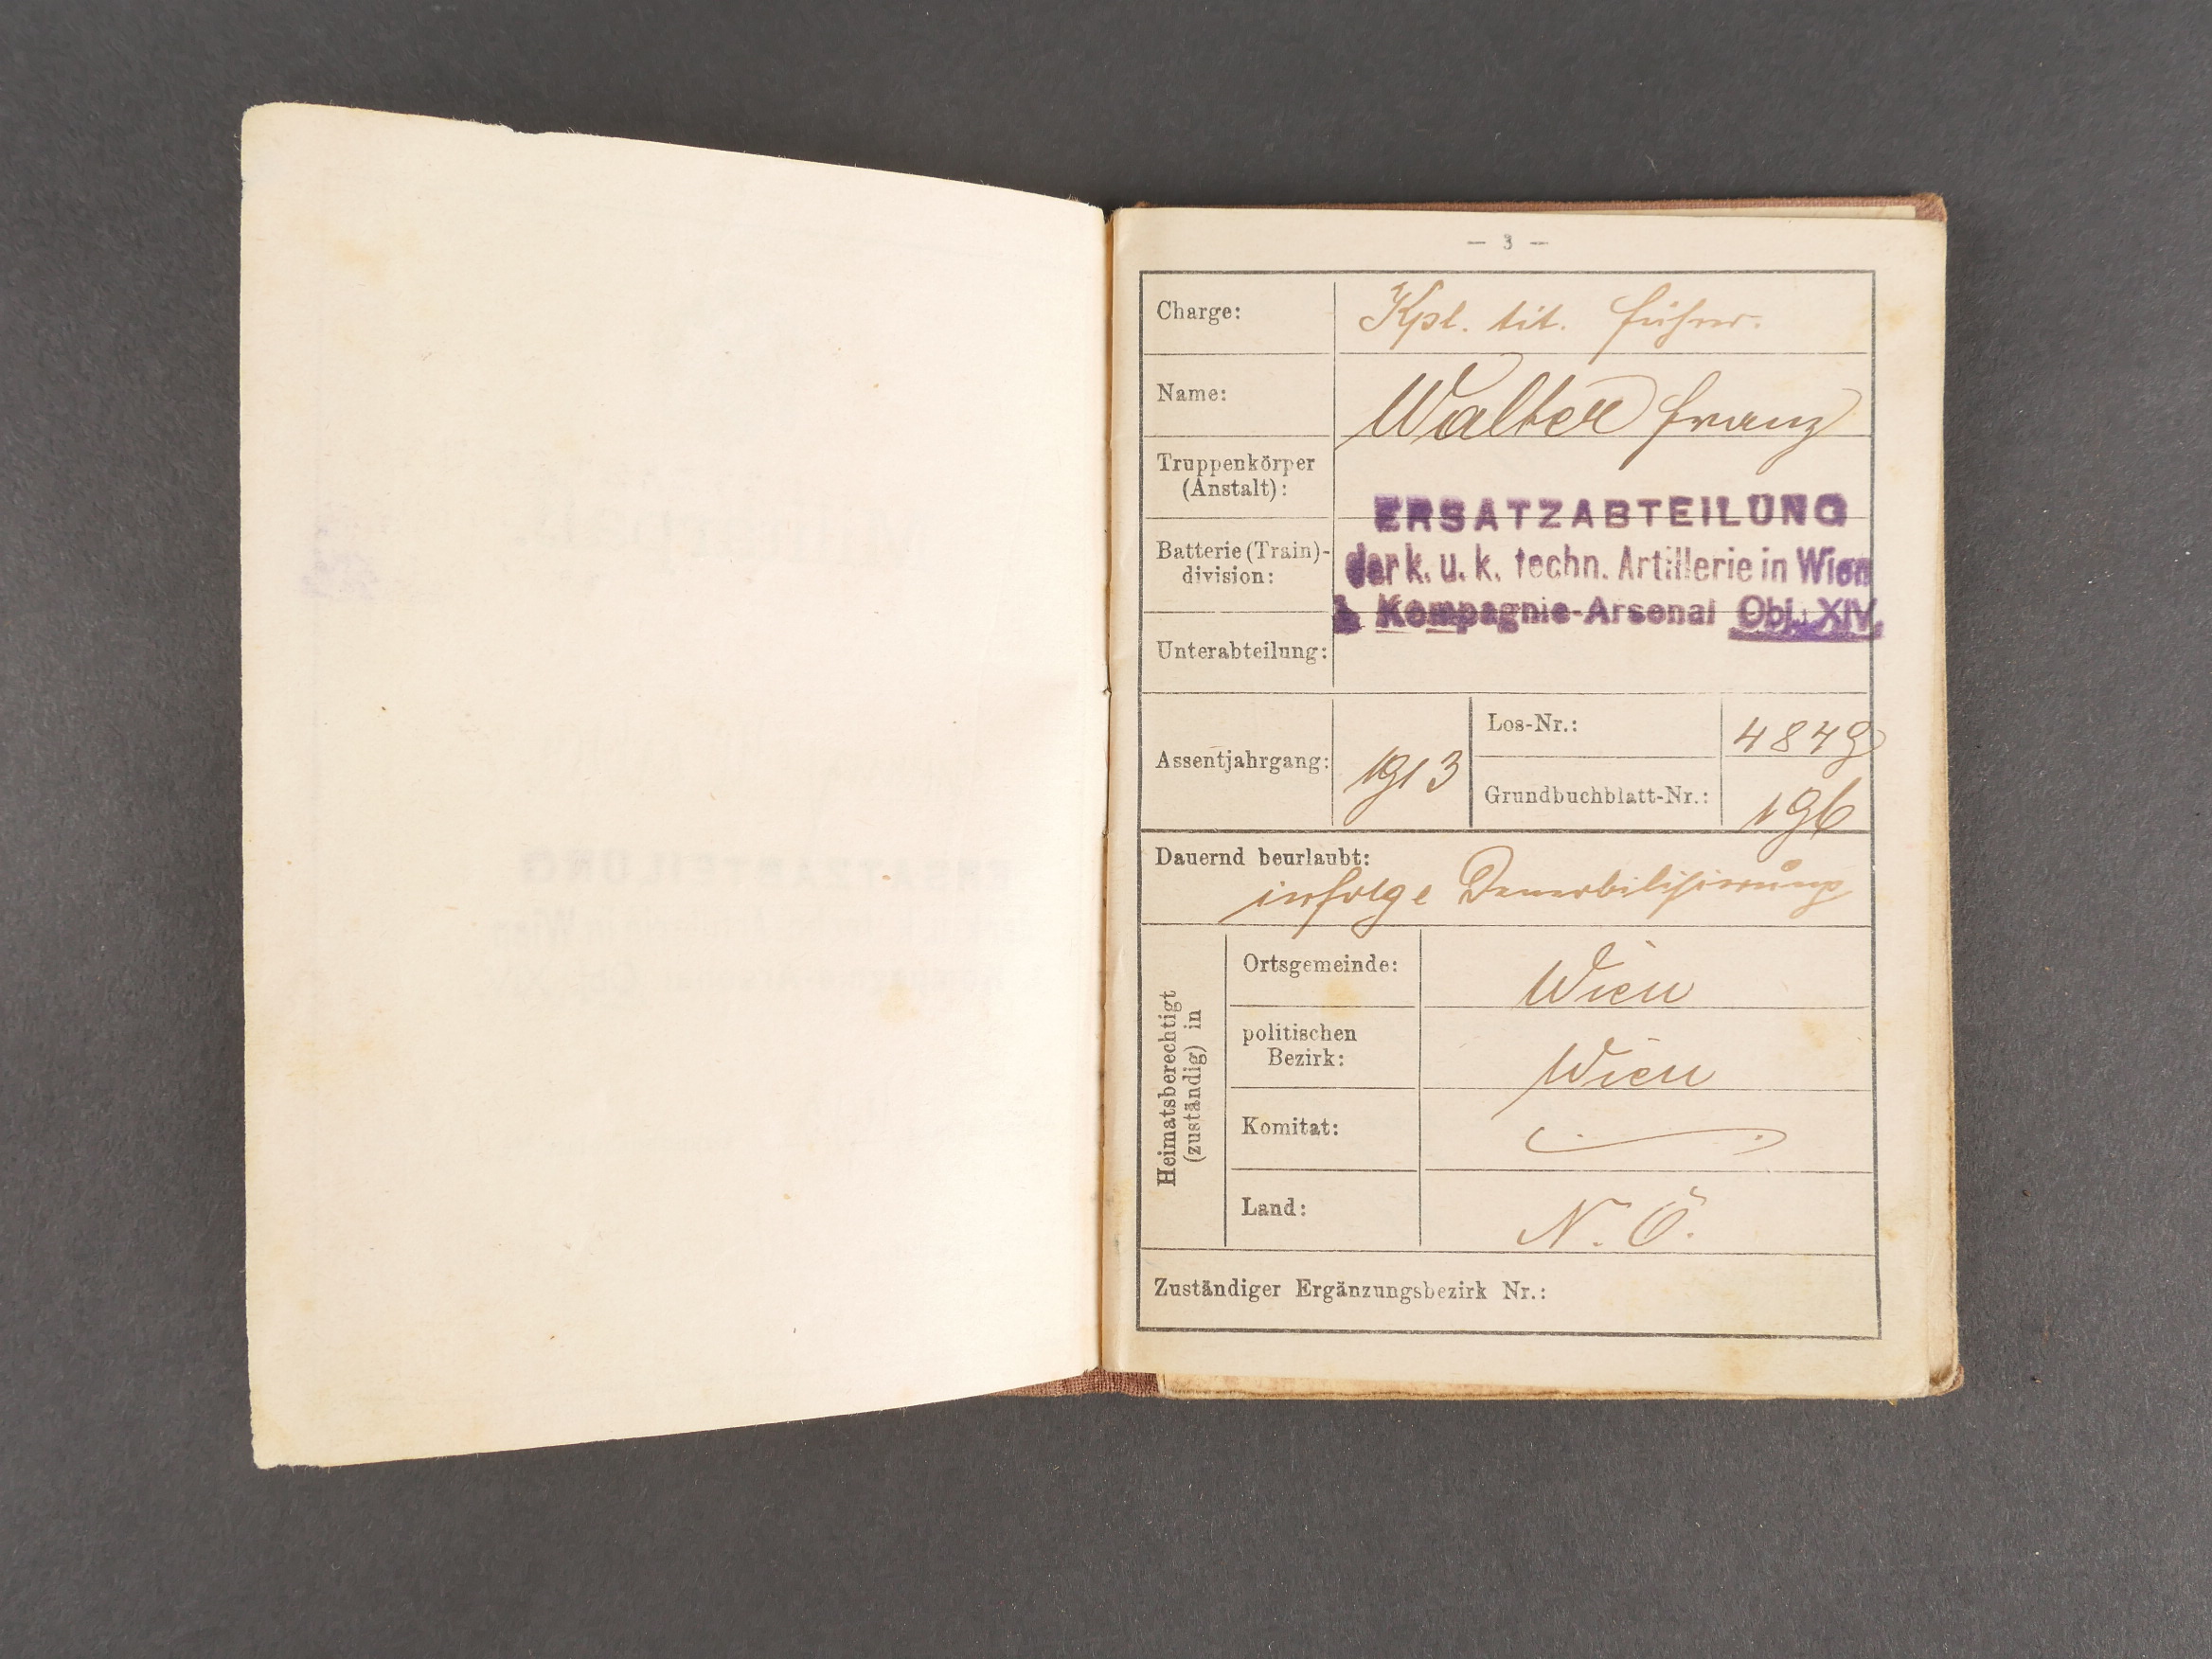 — 3 —
Charge: Kpl. tit. Führer.
Name: Walter Franz
Truppenkörper
(Anstalt):
ERSATZABTEILUNG
Batterie (Train)-
division:
der k. u. k. techn. Artillerie in Wien
Kompagnie-Arsenal Obj. XIV.
Unterabteilung:
Assentjahrgang: 1913
Los-Nr.: 4849
Grundbuchblatt-Nr.: 196
Dauernd beurlaubt:
infolge Demobilisierung
Heimatsberechtigt
(zuständig) in
Ortsgemeinde: Wien
politischen
Bezirk: Wien
Komitat:
Land: N. Ö.
Zuständiger Ergänzungsbezirk Nr.: